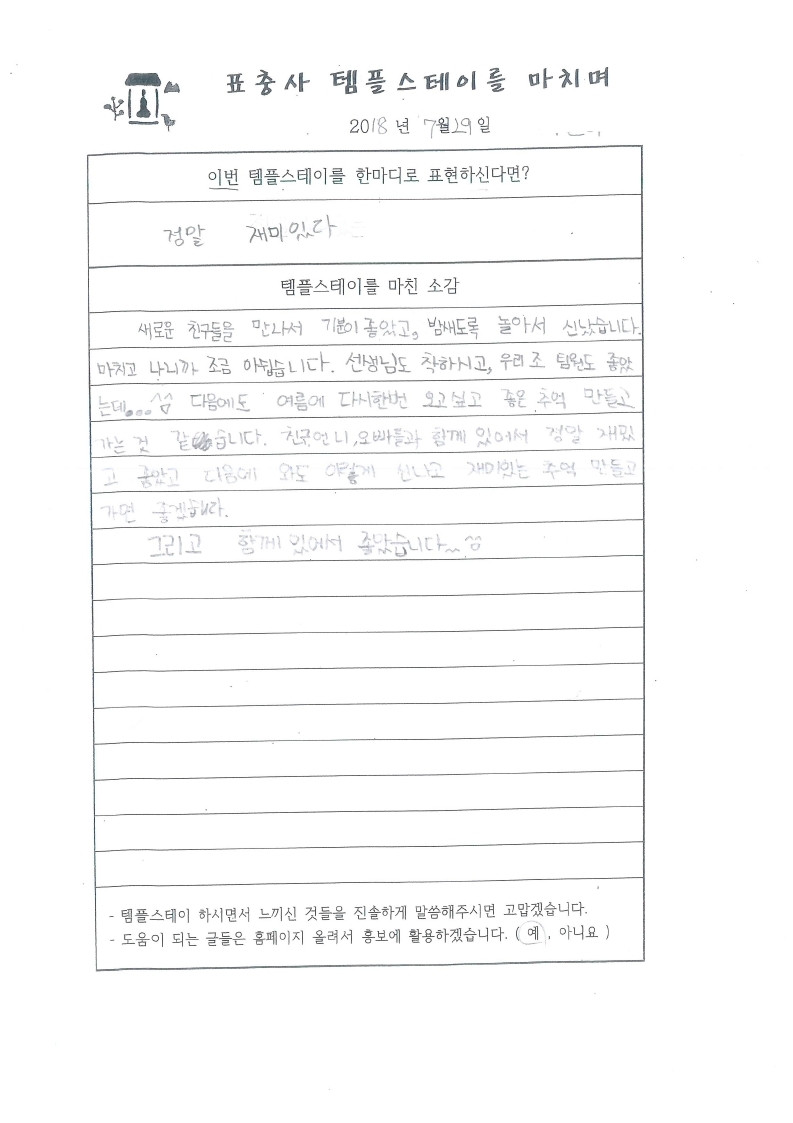 표충사 템플스테이를 마치며
2018년 7월29일
이번 템플스테이를 한마디로 표현하신다면?
정말 재미있다
템플스테이를 마친 소감
새로운 친구들을 만나서 기분이 좋았고, 밤새도록 놀아서 신났습니다.
마치고 나니까 조금 아쉽습니다. 선생님도 착하시고, 우리 조 팀원도 좋았
는데... ^^ 다음에도 여름에 다시한번 오고싶고 좋은 추억 만들고
가는 것 같습니다. 친구,언니,오빠들과 함께 있어서 정말 재밌
고 좋았고 다음에 와도 이렇게 신나고 재미있는 추억 만들고
가면 좋겠습니다.
그리고 함께 있에서 좋았습니다~ ^^
- 템플스테이 하시면서 느끼신 것들을 진솔하게 말씀해주시면 고맙겠습니다.
- 도움이 되는 글들은 홈페이지 올려서 홍보에 활용하겠습니다. ( 예 , 아니요 )